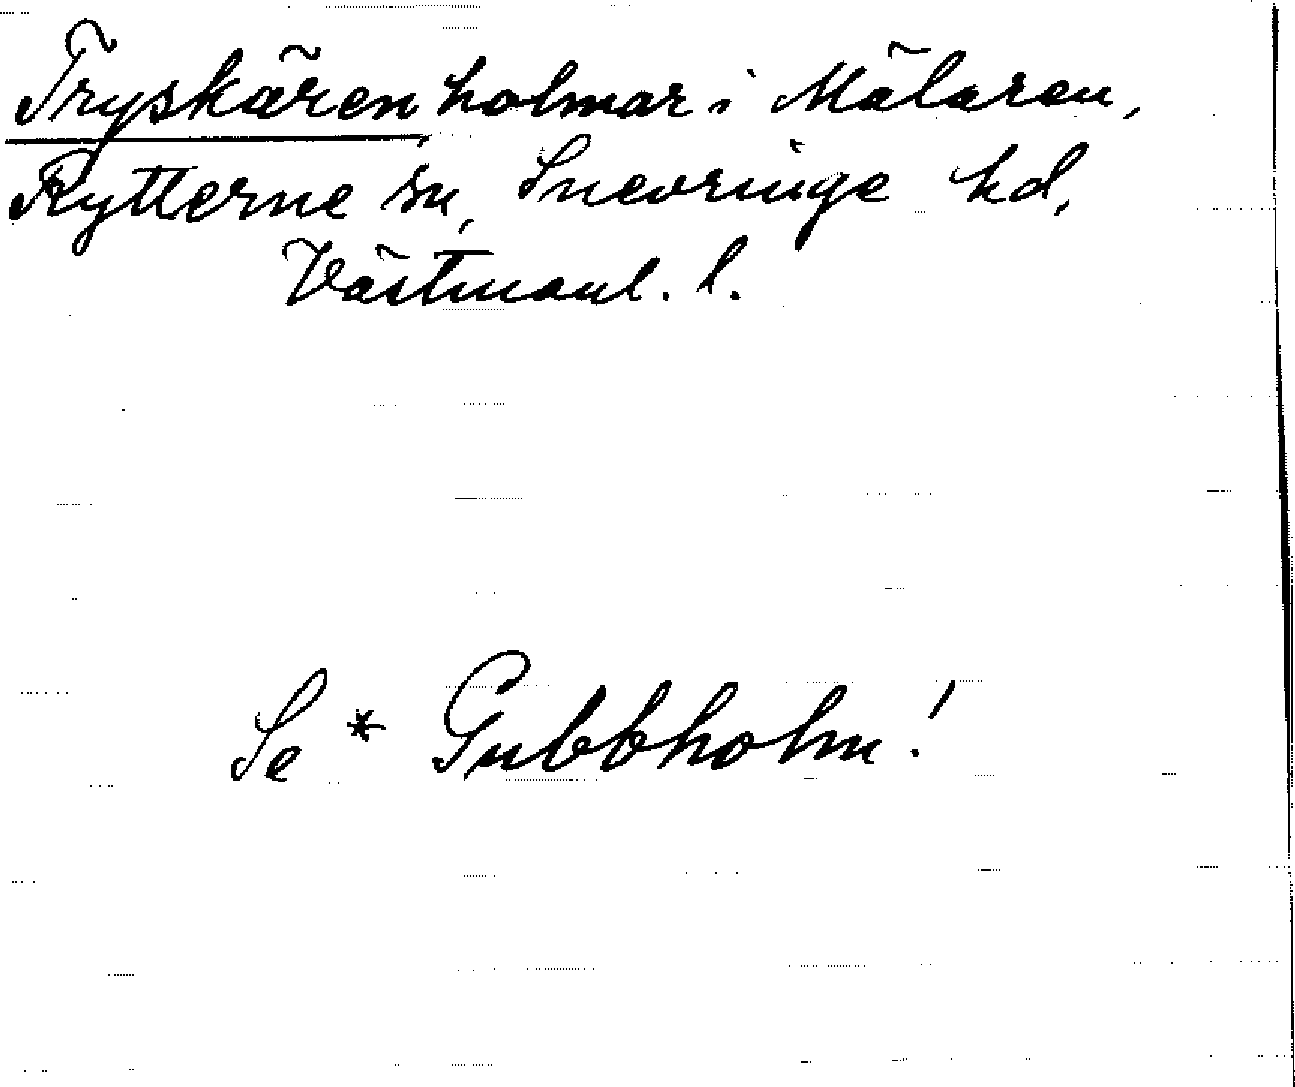 Tryskären, holmar i Mälaren,
Rytterne sn, Snevringe hd,
Västmanl. l.
Se * Gubbholm!